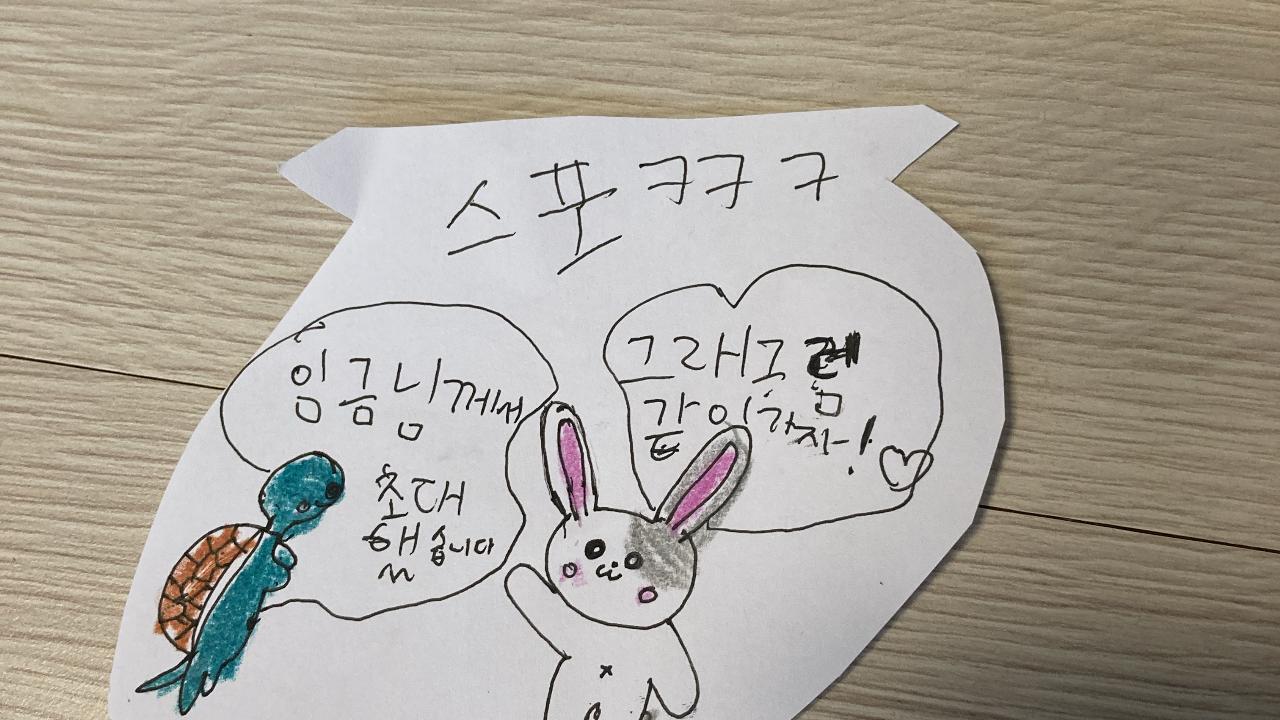 스포 ㅋㅋㅋ
임금님께서
초대
했습니다
그래 그럼
같이 가자!